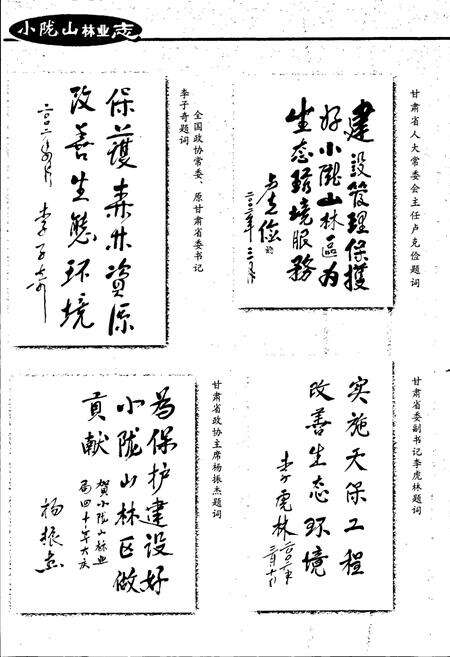 小陇山林业志
甘肃省人大常委会主任卢克俭题词
建設管理保護
好小隴山林區为
生态環境服務
卢克俭
二〇〇二年三月
全国政协常委、原甘肃省委书记
李子奇题词
保護森林資源
改善生態环境
李子奇
甘肃省委副书记李虎林题词
实施天保工程
改善生态环境
李虎林
二〇〇二年
三月十
甘肃省政协主席杨振杰题词
为保护建设好
小陇山林区做
贡献
贺小陇山林业
局四十年大庆
杨振杰